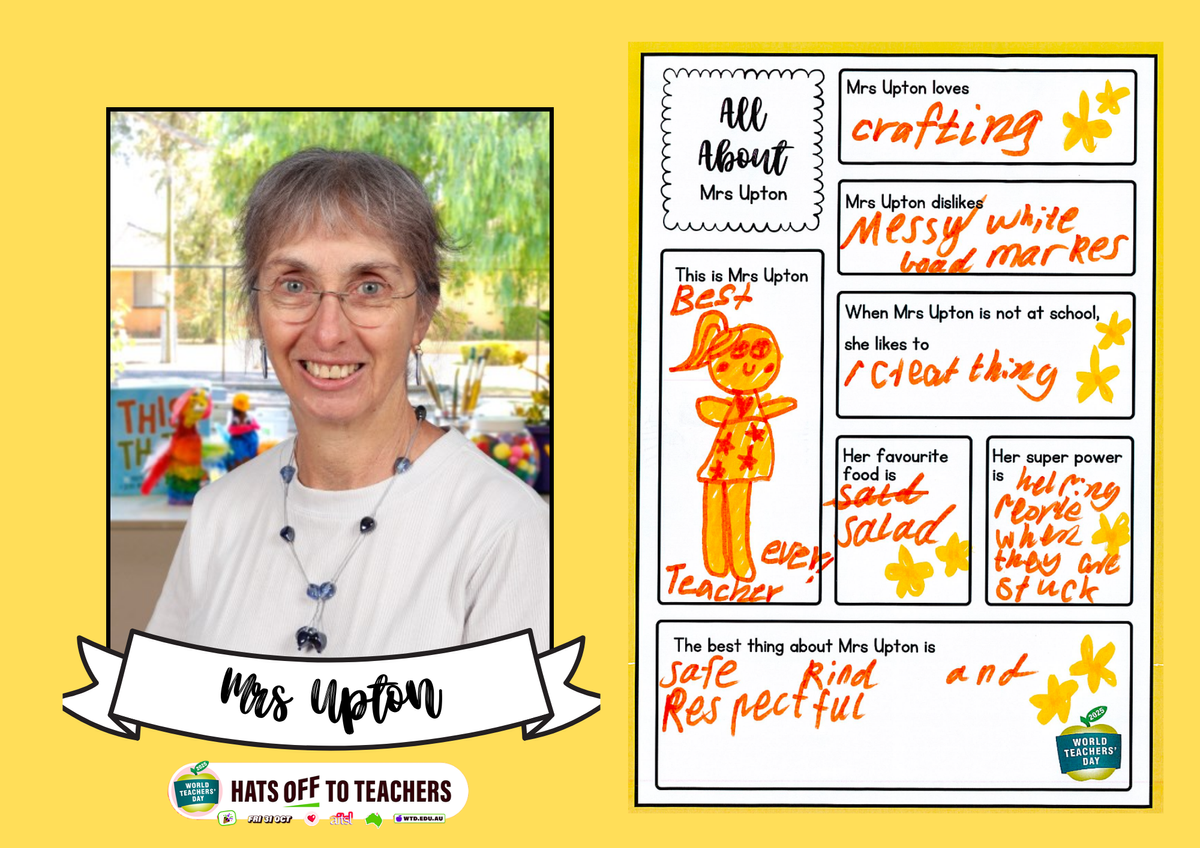 THIS
TH
Mrs Upton
2025
WORLD
TEACHERS'
DAY
HATS OFF TO TEACHERS
FRI 31 OCT
aitsl
WTD.EDU.AU
All
About
Mrs Upton
This is Mrs Upton
Best
Teacher
ever!!
Mrs Upton loves
crafting
Mrs Upton dislikes
Messy white
boad markes
When Mrs Upton is not at school,
she likes to
creat thing
Her favourite
food is
salad
Her super power
is helping
people
when
they are
stuck
The best thing about Mrs Upton is
safe kind and
Respectful
2025
WORLD
TEACHERS'
DAY